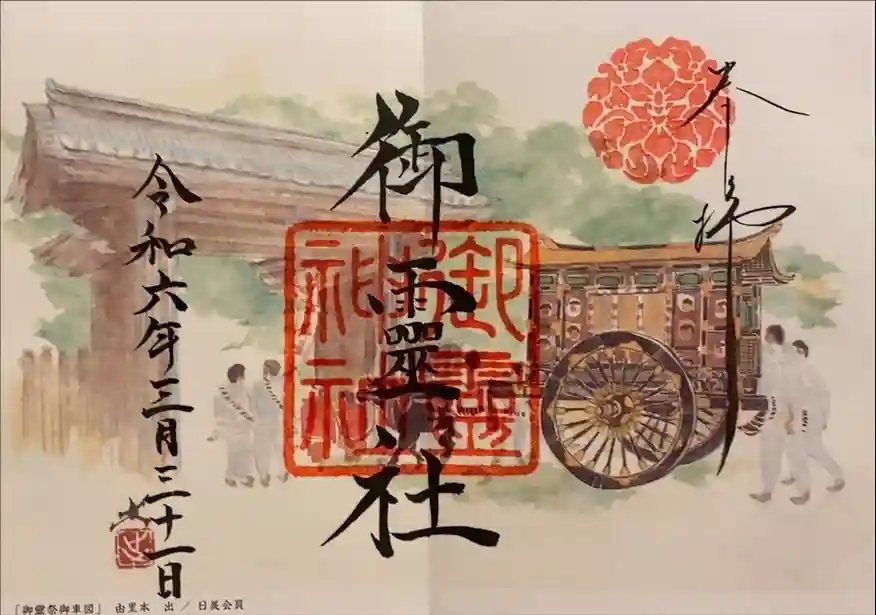 奉拝
御靈社
令和六年三月三十一日
「御靈祭御車図」 由里本 出 / 日展会員